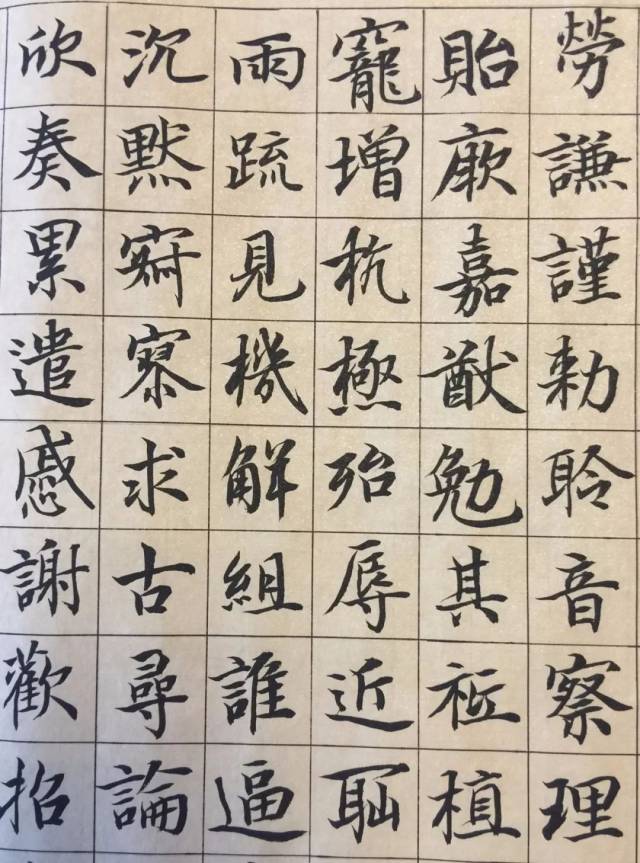 勞謙謹勅聆音察理
貽厥嘉猷勉其祗植
寵增抗極殆辱近恥
兩疏見機解組誰逼
沉默寂寥求古尋論
欣奏累遣慼謝歡招